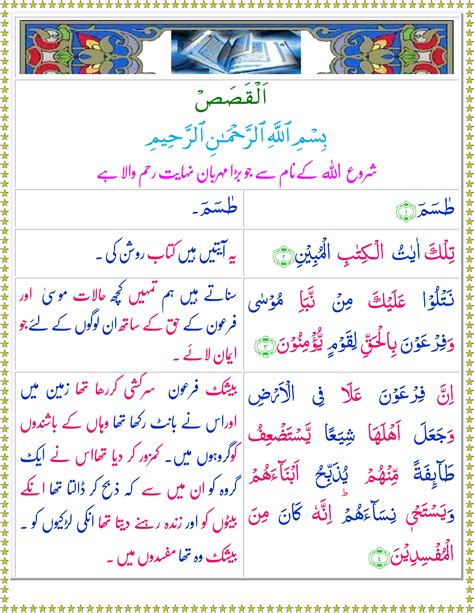 اَلْقَصَصْ
بِسْمِ اللّٰهِ الرَّحْمٰنِ الرَّحِيمِ
شروع اللہ کے نام سے جو بڑا مہربان نہایت رحم والا ہے
طٰسٓمّٓ ۝۱
طٰسٓمّٓ۔
تِلْكَ اٰيٰتُ الْكِتٰبِ الْمُبِيْنِ ۝۲
یہ آیتیں ہیں کتاب روشن کی ۔
نَتْلُوْا عَلَيْكَ مِنْ نَّبَاِ مُوْسٰى
وَفِرْعَوْنَ بِالْحَقِّ لِقَوْمٍ يُّؤْمِنُوْنَ ۝۳
سناتے ہیں ہم تمہیں کچھ حالات موسیٰ اور
فرعون کے حق کے ساتھ ان لوگوں کے لئے جو
ایمان لائے ۔
اِنَّ فِرْعَوْنَ عَلَا فِى الْاَرْضِ
وَجَعَلَ اَهْلَهَا شِيَعًا يَّسْتَضْعِفُ
طَآئِفَةً مِّنْهُمْ يُذَبِّحُ اَبْنَآءَهُمْ
وَيَسْتَحْىٖ نِسَآءَهُمْ ؕ اِنَّهٗ كَانَ مِنَ
الْمُفْسِدِيْنَ ۝۴
بیشک فرعون سرکشی کررہا تھا زمین میں
اوراس نے بانٹ رکھا تھا وہاں کے باشندوں
کوگروہوں میں۔ کمزور کر دیا تھااس نے ایک
گروہ کو ان میں سے کہ ذبح کر ڈالتا تھا انکے
بیٹوں کو اور زندہ رہنے دیتا تھا انکی لڑکیوں کو ۔
بیشک وہ تھا مفسدوں میں ۔